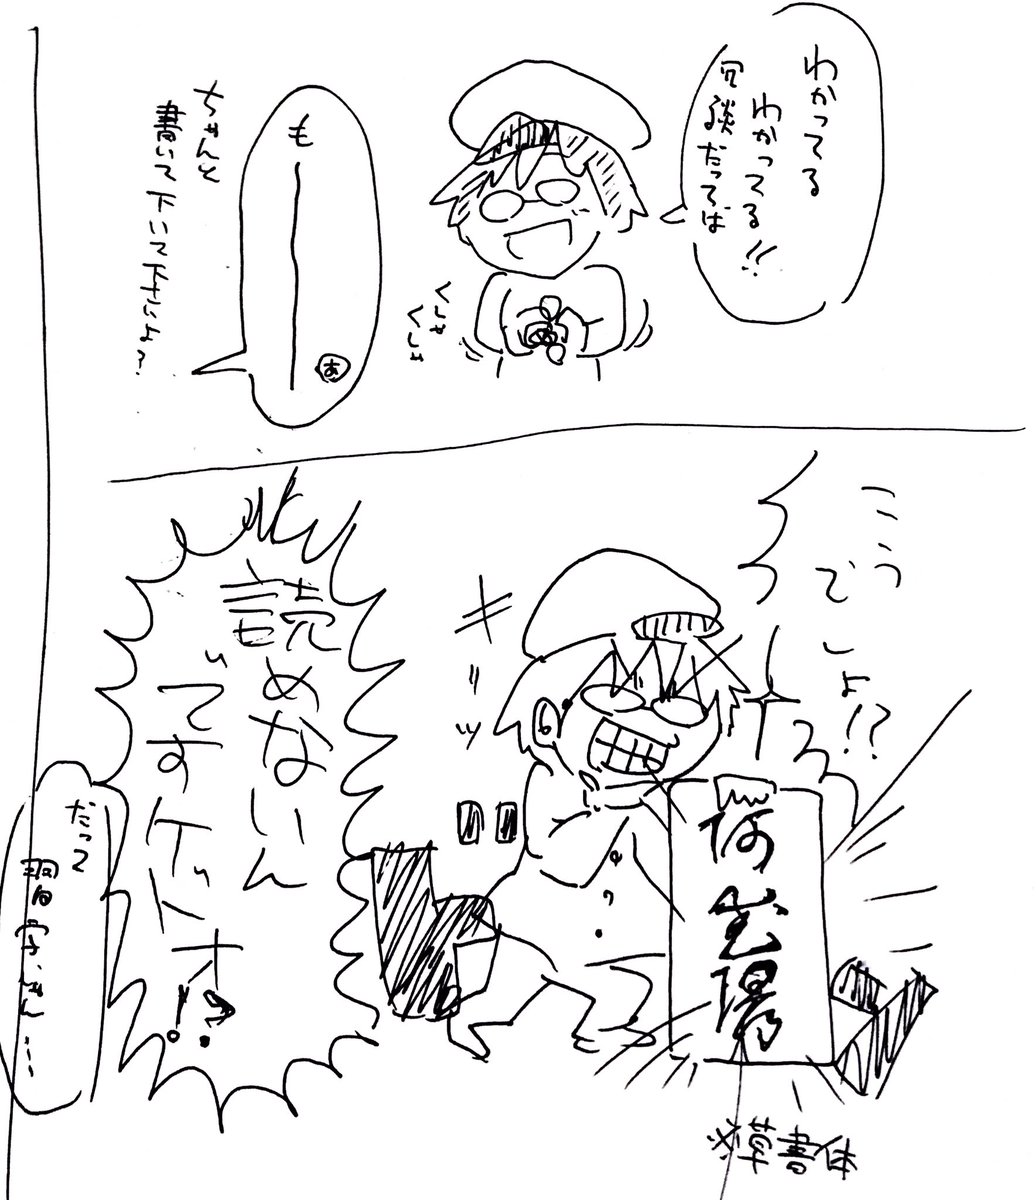 わかってる
わかってる!!
冗談だってば
くしゃ
くしゃ
も――――
あ
ちゃんと
書いて下いて下さいよ?
こう
でしょ!?
キリッ
※草書体
読めないん
ですケド
だって
習字じゃん…